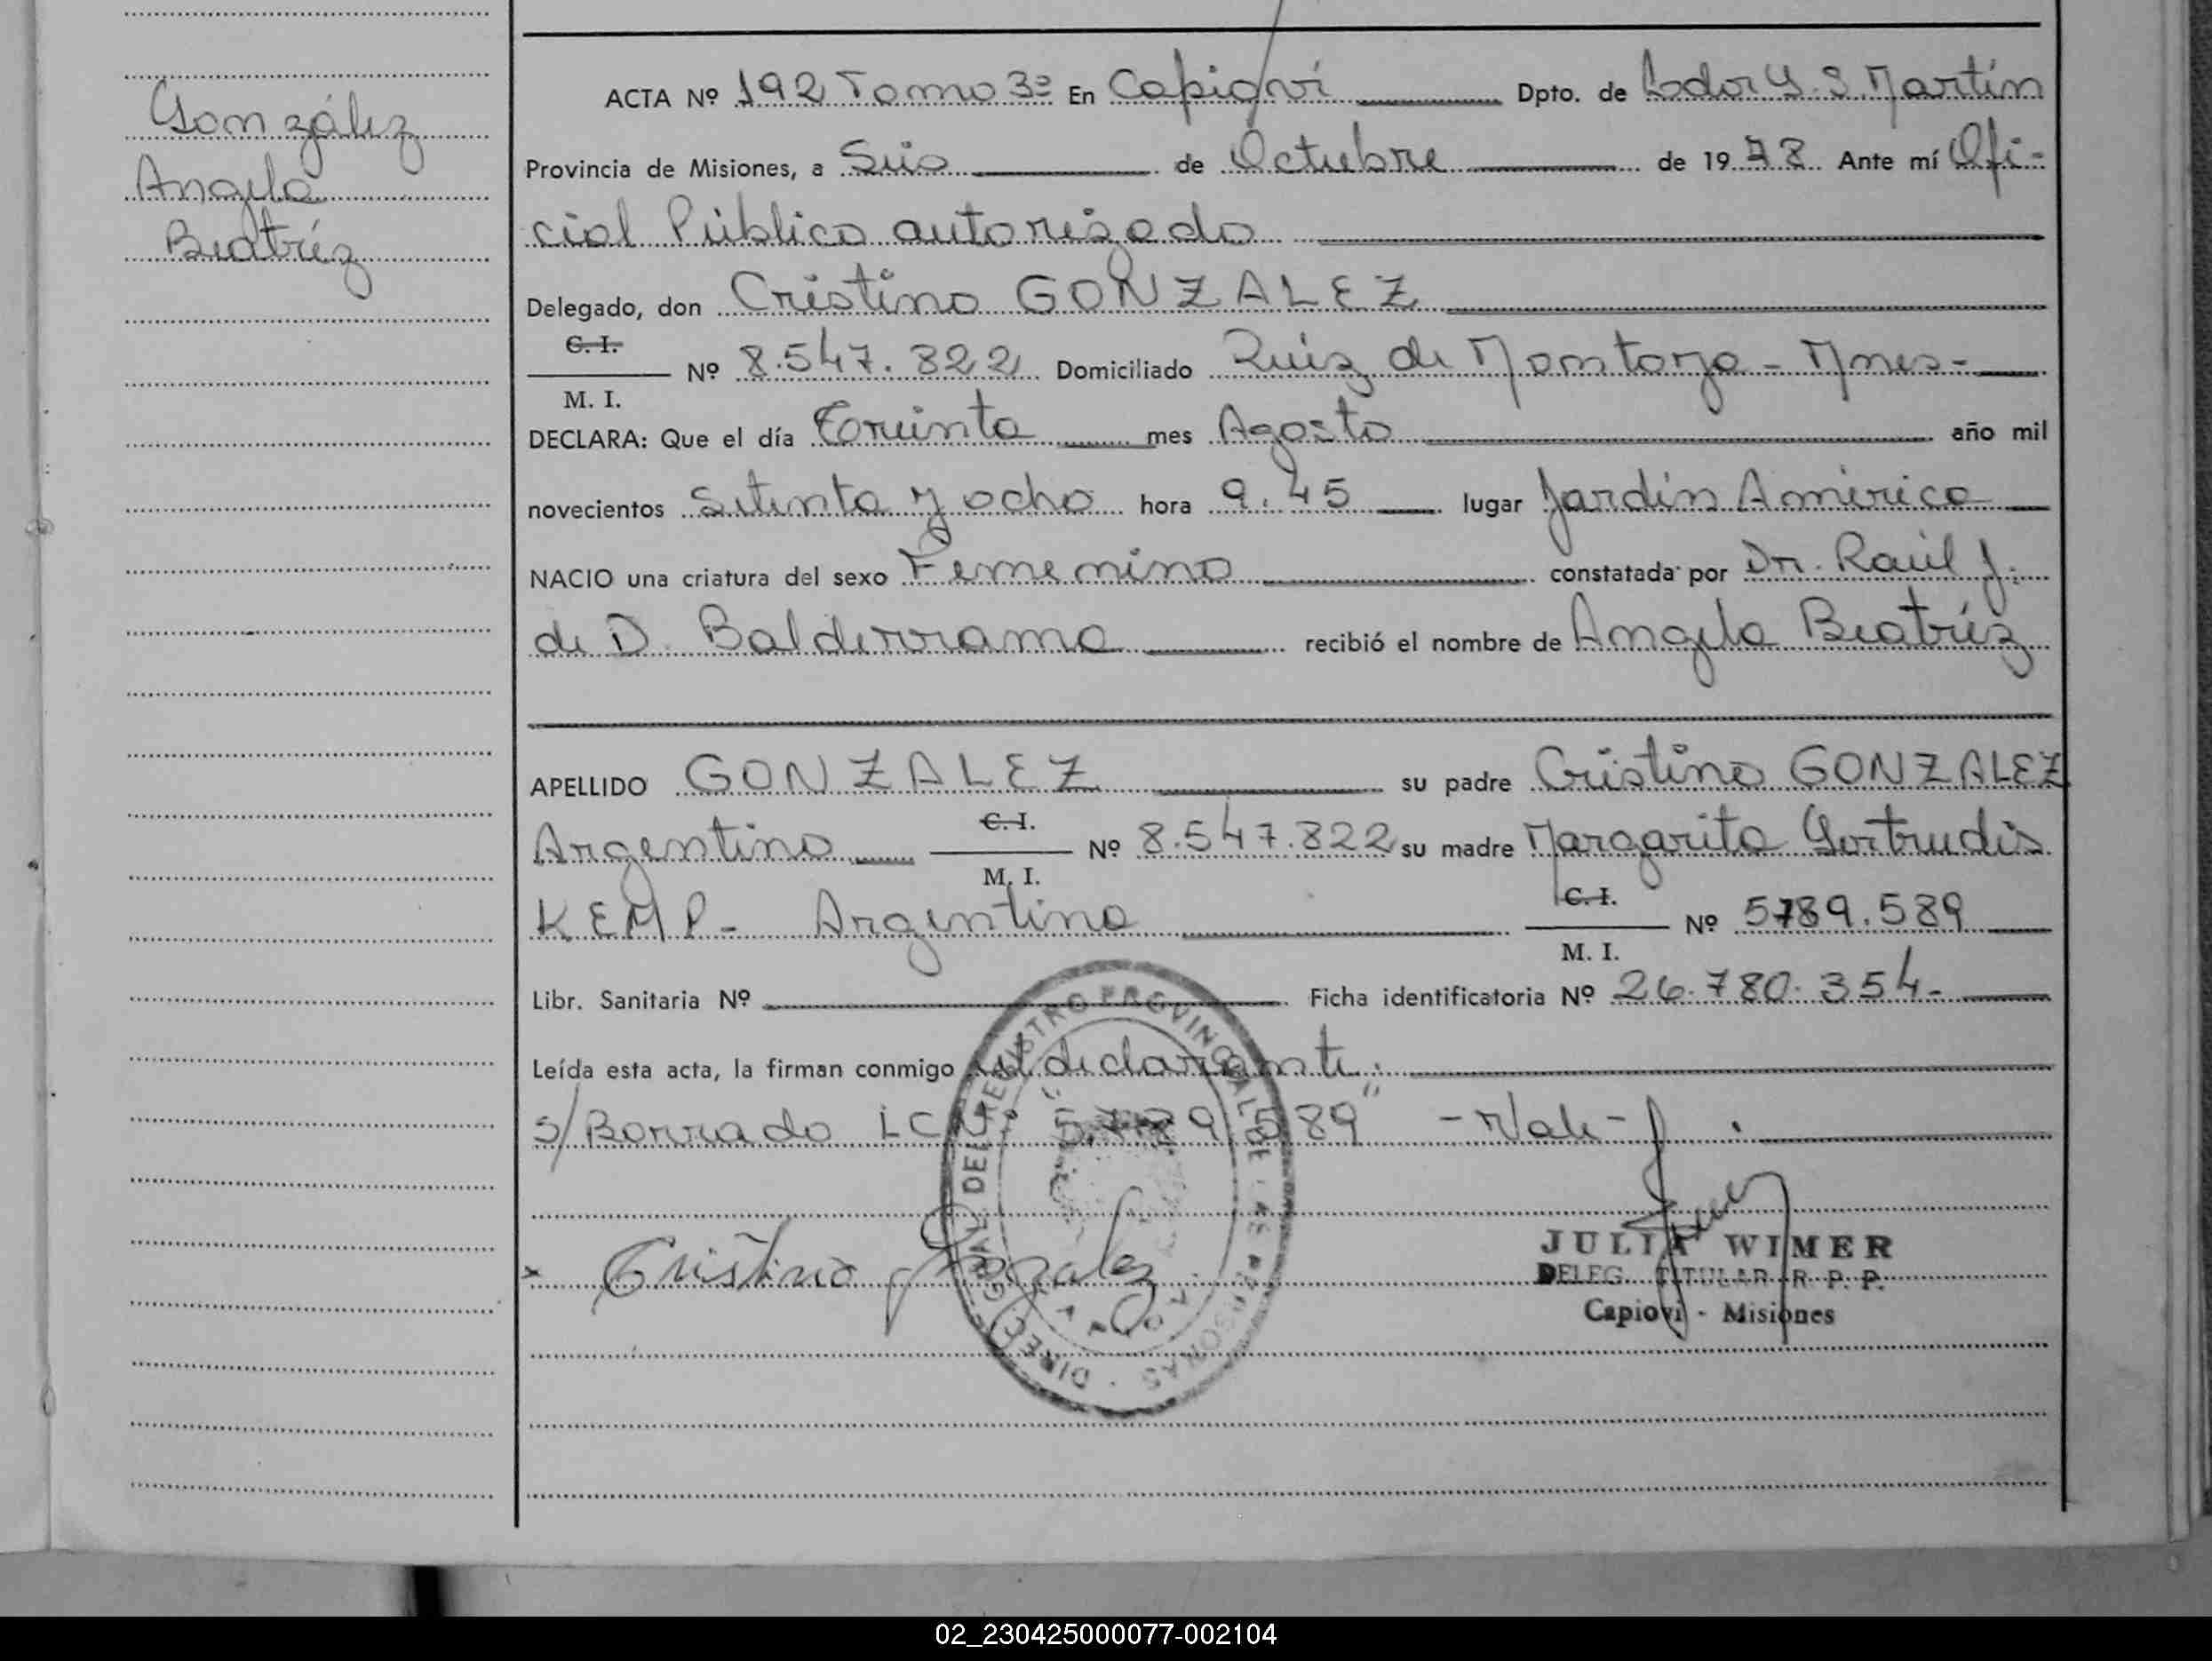 González
Angela
Beatríz
ACTA Nº 192 Tomo 3º En Capioví Dpto. de Ldor G. S. Martín
Provincia de Misiones, a Seis de Octubre de 1978 Ante mí Ofi-
cial Público autorizado
Delegado, don Cristino GONZALEZ
C. I.
Nº 8.547.822 Domiciliado Ruiz de Montoya - Mnes-
M. I.
DECLARA: Que el día Treinta mes Agosto año mil
novecientos Setenta y ocho hora 9.45 lugar Jardín América
NACIO una criatura del sexo Femenino constatada por Dr. Raúl J.
de D. Balderrama recibió el nombre de Angela Beatríz
APELLIDO GONZALEZ su padre Cristino GONZALEZ
C. I.
Argentino Nº 8.547.822 su madre Margarita Gertrudis
M. I.
C. I.
KEMP - Argentina Nº 5789.589
M. I.
Libr. Sanitaria Nº Ficha identificatoria Nº 26.780.354.-
Leída esta acta, la firman conmigo el declarante.
s/Borrado LC Nº "5.789.589" - Vale -
x Cristino Gonzalez
JULIA WIMER
DELEG. TITULAR R. P. P.
Capioví - Misiones
DIREC. GRAL. DEL REGISTRO PROVINCIAL DE LAS PERSONAS
02_230425000077-002104